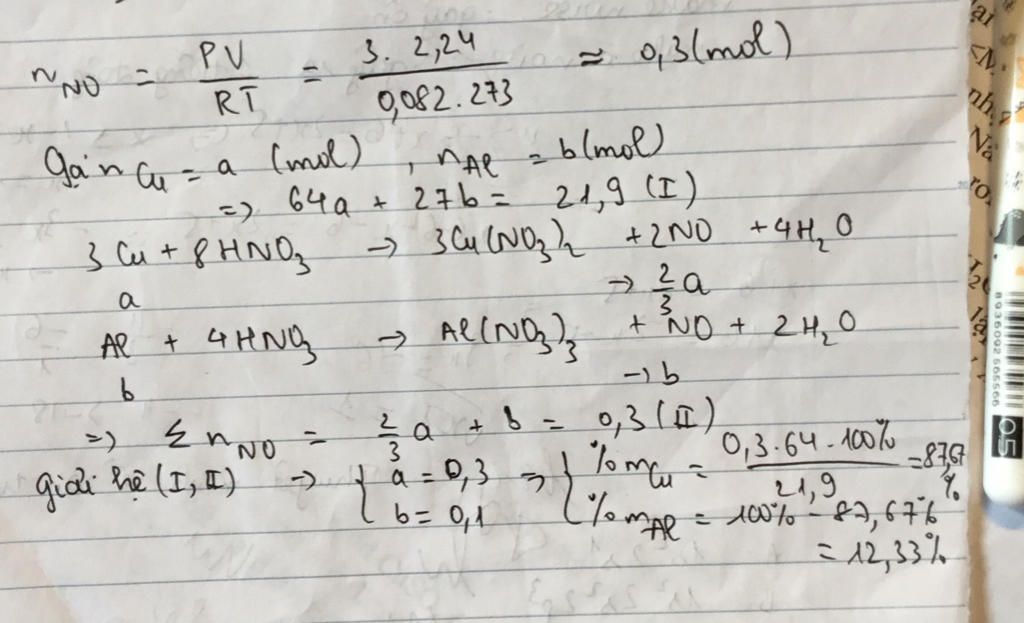 n_NO = PV/RT = 3. 2,24/0,082.273 ≈ 0,3(mol)
Gọi n Cu = a (mol) , n Al = b(mol)
=> 64a + 27b = 21,9 (I)
3Cu + 8HNO3 → 3Cu(NO3)2 +2NO +4H2O
a → 2/3 a
Al + 4HNO3 → Al(NO3)3 + NO + 2H2O
b → b
=> Σ n_NO = 2/3 a + b = 0,3 (II)
giải hệ (I, II) → { a = 0,3 => { % m Cu = 0,3.64.100%/21,9 = 87,67%
b = 0,1 % m Al = 100% - 87,67%
= 12,33%
8936092565566
0.5